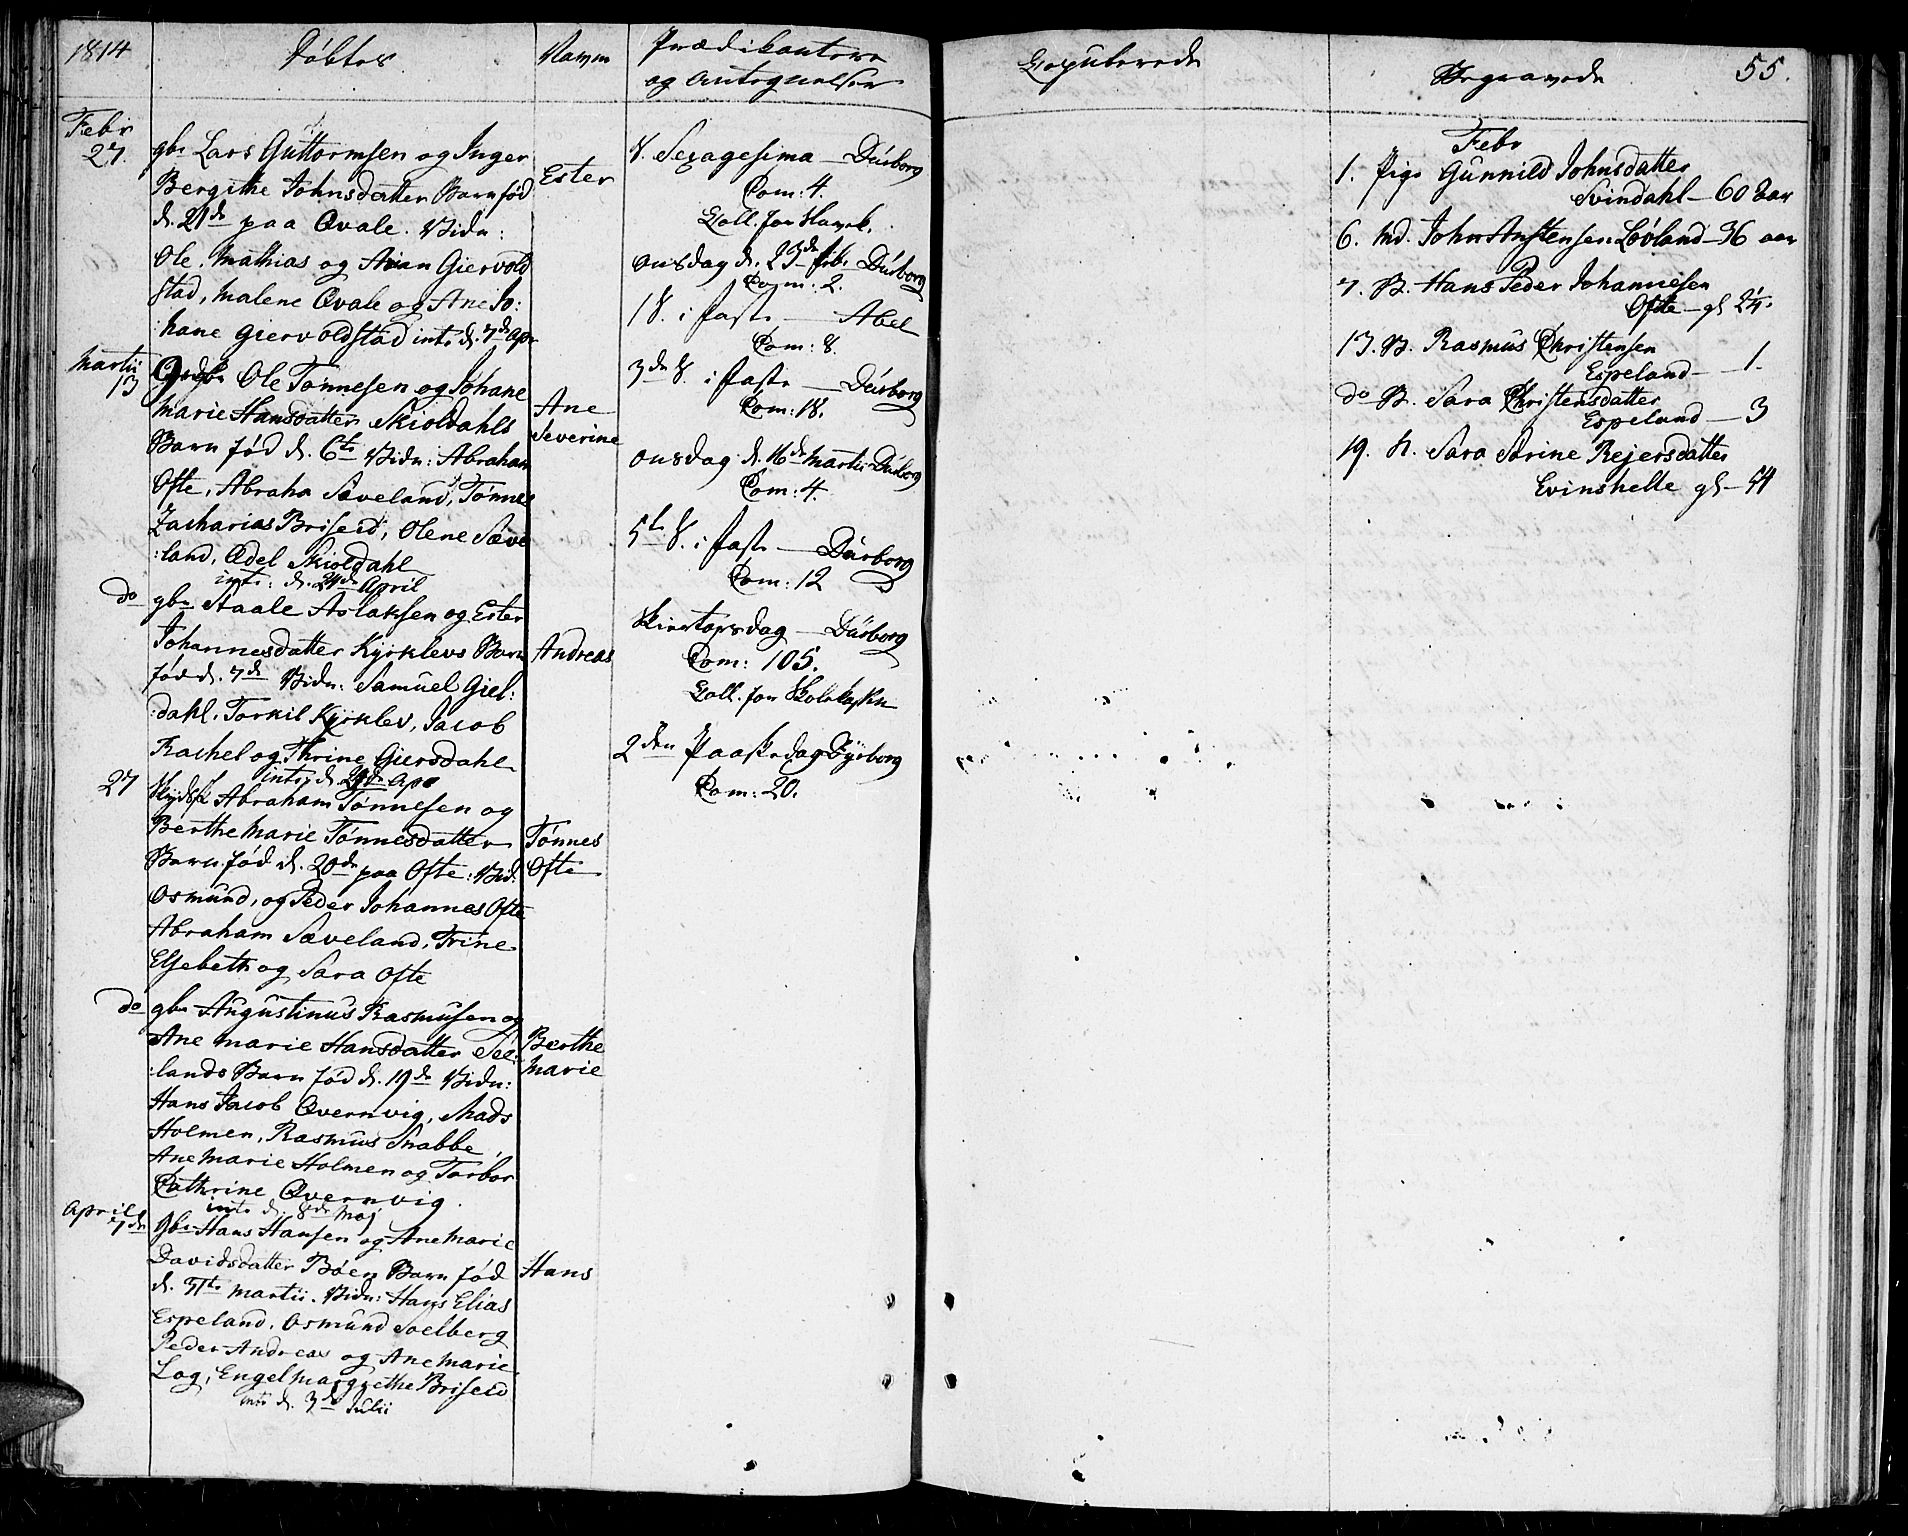 1814
Döbte
Navn
Prædikantere
og Antegnelser
Febr
27.
gbr Lars Guttormsen og Inger
Bergithe Johnsdatter Barn fød
d. 21de paa Qvale. Vidn:
Ole, Mathias og Arian Giervold
stad, Malene Qvale og Ane Jo:
:hane Giervoldstad intr d. 7de Apr
Ester
Martii
13
Ole Tønnesen og Johane
Marie Hansdatter Skioldahls
Barn fød d. 6te Vidn: Abraham
Ofte, Abraha Sæveland, Tønnes
Zacharias Briseid, Olene Sæve
:land, Ædel Skioldahl
intr: d. 24de April
Ane
Severine
do
gbr Staale Aslaksen og Ester
Johannesdatter Kyrklevs Barn
fød d. 7de Vidn: Samuel Giel:
:dahl, Torkil Kyrklev, Jacob
Rachel og Thrine Giersdahl
intr d. 24de Apr
Andreas
27
Abraham Tønnesen og
Berthe Marie Tönnesdatter
Barn fød d. 20de paa Ofte: Vid:
Osmund, og Peder Johannes Ofte
Abraham Sæveland, Trine
Elsebeth og Sara Ofte
Tönnes
Ofte
do
gbr Augustinus Rasmusen og
Ane Marie Hansdatter See:
:lands Barn fød d. 19de Vidn:
Hans Jacob Qvernvig, Mads
Holmen, Rasmus Snabbe,
Ane Marie Holmen og Torbor
Cathrine Qvernvig.
intr d. 8de Maj
Berthe
Marie
April
7de
gbr Hans Hansen og Ane Marie
Davidsdatter Böen Barn fød
d. 31te Martii. Vidn: Hans Elias
Espeland, Osmund Soelberg
Peder Andreas og Ane Marie
Log, Engel Margrethe Briseid
intr d. 3de Julii
Hans
S. Sexagesima — Dürborg
Com: 4.
Coll. for
Onsdag d. 23de febr Dürborg
Com: 2.
1 S. i faste — Abel
Com: 8.
3de S. i faste — Dürborg
Com: 18.
Onsdag d. 16de Martii Dürborg
Com: 4.
5te S. i faste — Dürborg
Com: 12
Skiertorsdag — Dürborg
Com: 105.
Coll. for
2den Paaskedag Dyrborg
Com: 20.
Copulerede
Begravede
55.
Febr
1. Pige Gunnild Johnsdatter
Svindahl — 60 aar
6. Md. John Anstensen Lövland — 36 aar
7. B. Hans Peder Johannesen
Ofte — gl
13. B. Rasmus Christensen
Espeland — 1.
do B. Sara Christensdatter
Espeland — 3
19. K. Sara Serine Rejersdatter
Evinshelle gl — 54